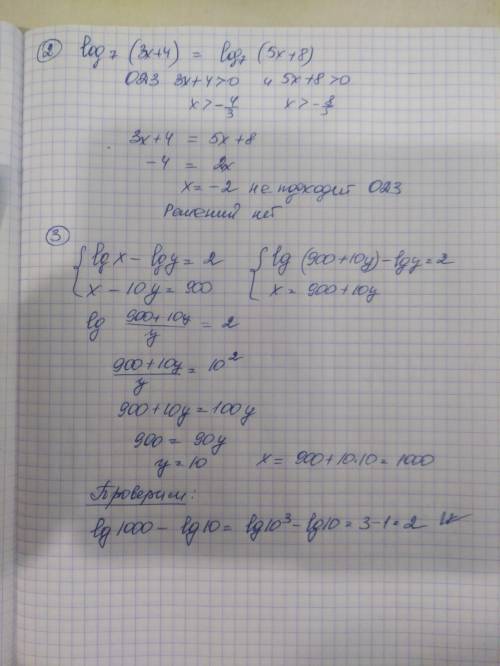 ② log₇ (3x+4) = log₇ (5x+8)
ОДЗ 3x+4>0 и 5x+8>0
x>-4/3 x>-8/5
3x+4 = 5x+8
-4 = 2x
x = -2 не подходит ОДЗ
Решений нет
③
{ lg x - lg y = 2 { lg (900+10y) - lg y = 2
{ x - 10y = 900 { x = 900+10y
lg (900+10y)/y = 2
(900+10y)/y = 10²
900+10y = 100y
900 = 90y
y = 10 x = 900+10·10 = 1000
Проверим:
lg 1000 - lg 10 = lg 10³ - lg 10 = 3-1 = 2